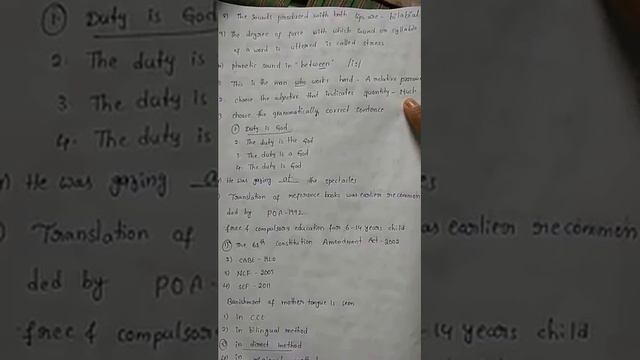 8) The sounds produced with both lips are - bilabial
9) The degree of force with which sound or syllable
of a word is uttered is called stress
phonetic sound in "between" /i:/
This is the man who works hard - A relative pronoun
2. choose the adjective that indicates quantity - Much
3 choose the grammatically correct sentence
① Duty is God
2. The duty is the God
3. The duty is a God
4. The duty is God
He was gazing at the spectacles
Translation of reference books was earlier recommen
ded by POA-1992
free & compulsory education for 6-14 years child
① The 86th Constitution Amendment Act - 2002
2) CABE -
3) NCF - 2005
4) SCF - 2011
Banishment of mother tongue is seen
1) In CCE
2) in bilingual method
③ in direct method
in
① Duty is God
2. The duty is
3 The duty is
4. The duty
He was gazing
Translation of
ded by POA-
free & compulsory
was earlier recommen
-14 years child